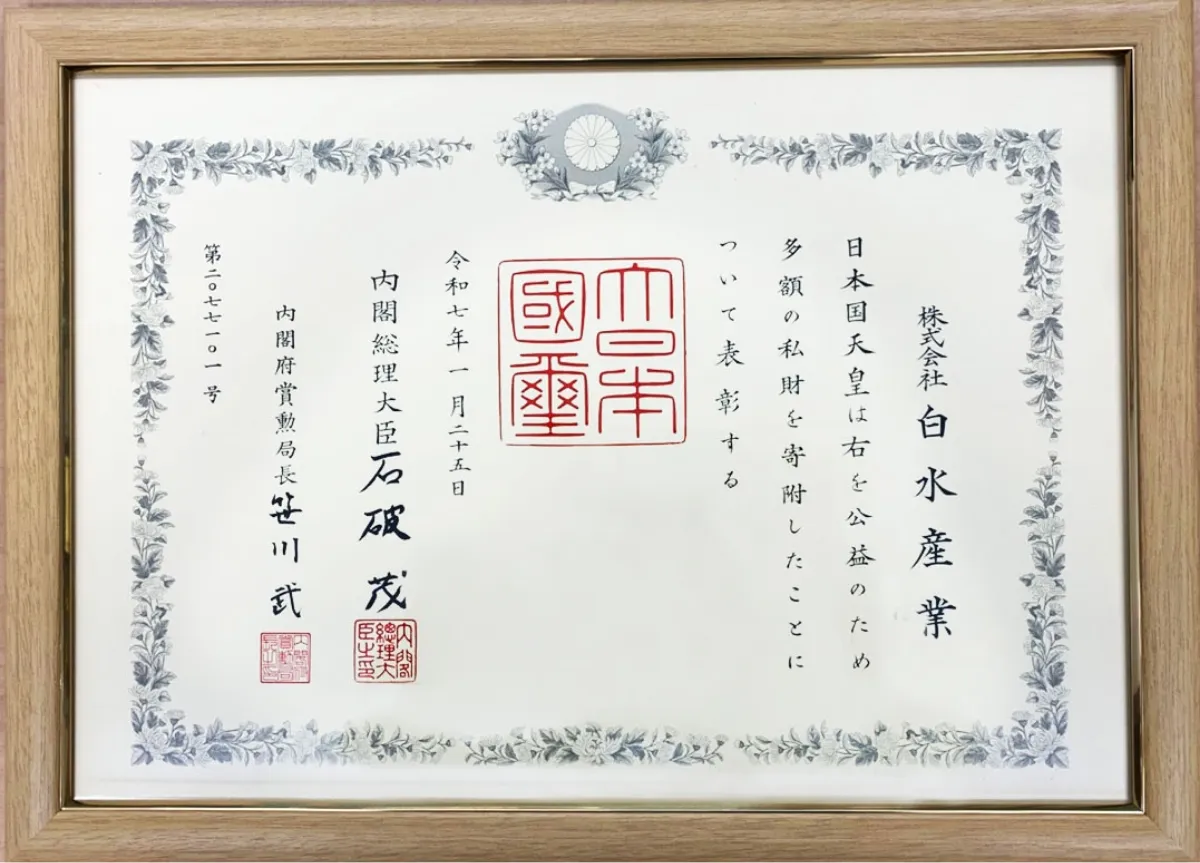 株式会社 白水産業
日本国天皇は右を公益のため
多額の私財を寄附したことに
ついて表彰する
大日本國璽
令和七年一月二十五日
内閣総理大臣 石破 茂
内閣總理大臣之印
内閣府賞勲局長 笹川 武
第二〇七七一〇一号